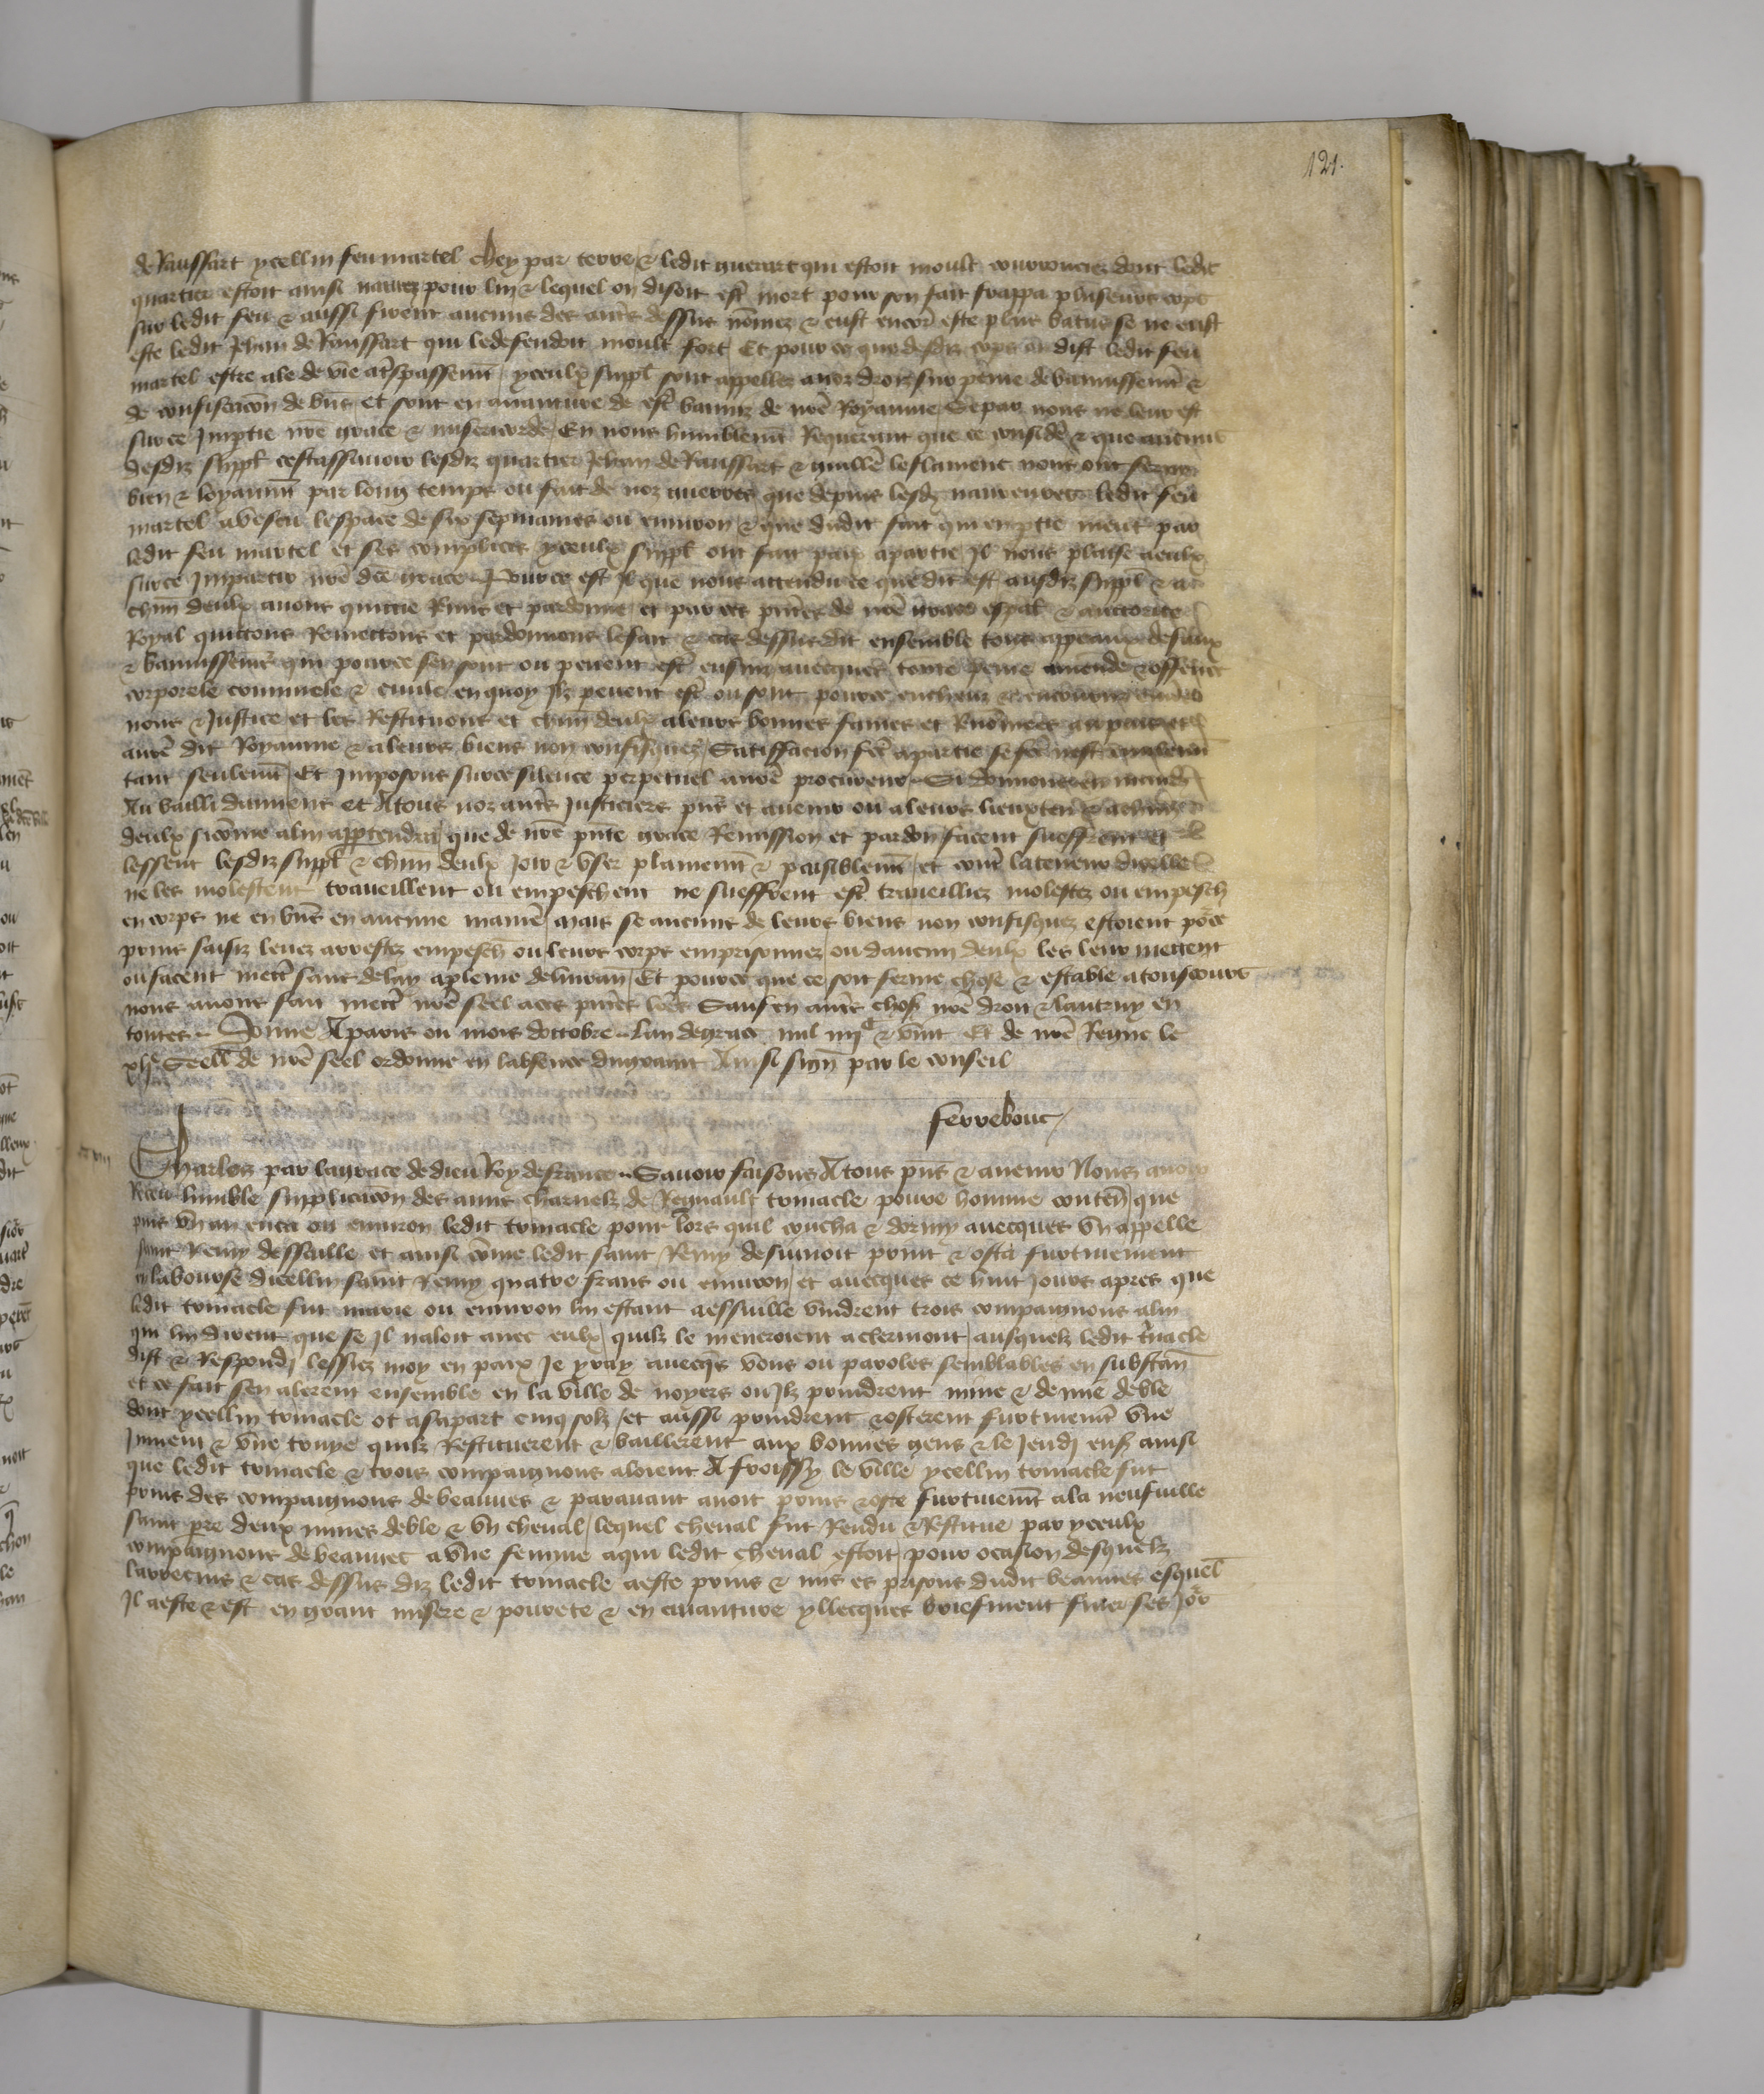 121.
de Raussart ycellui feu martel chey par terre & ledit guerart qui estoit moult courrouciez dont ledit
quartier estoit ainsi navrez pour lui & lequel on disoit est̃ mort pour son fait frappa pluseurs cops
sur ledit feu & aussi firent aucuns des aut̃s dessus nõmez & eust encor̃ este plus batus se ne eust
este ledit Jehan de Raussart qui le defendoit moult fort Et pour ce que desdiz cops on dist ledit feu
martel estre ale de vie a t̃spassemt̃ yceulx suppl̃ sont appellez a noz droiz sur peine de bannissemt̃ &
de confiscacõn de biẽs Et sont en avanture de est̃ banniz de nr̃e Royaume Se par nous ne leur est
sur ce Impartie nr̃e grace & misericorde En nous humblemt̃ Requerant que ce considere & que aucuns
desdiz suppl̃ cestassavoir lesdiz quartier Jehan de Raussart & guillẽ le flament nous ont servi
bien & loyaumt̃ par long temps ou fait de noz guerres que depuis lesd̃ navreures ledit feu
martel a vescu lespace de six sepmaines ou environ & que dudit fait qui en ptie meut par
ledit feu martel et ses complices yceulx suppl̃ ont fait paix a partie Il nous plaise a eulx
sur ce Impartir nr̃e dc̃e grace Pource est Il que nous attendu ce que dit est ausdiz suppl̃ & a
chũn deulx avons quictie Remis et pardonne et par ces pñtes de nr̃e grace esp̃al & auctorite
Royal quictons Remettons et pardonnons le fait & cas dessusdit ensemble tous appeaux defaux
& bannissemẽs qui pour ce sen sont ou pevent est̃ ensuiz avecques toute peine amende & offense
corporele criminele & civile en quoy Ilz pevent est̃ ou sont pour ce encheuz & encouruz envers
nous & Justice et les Restituons et chũn deulx a leurs bonnes fames et Renõmees au pais et
a nr̃e dit Royaume & a leurs biens non confisquez Satisfacion fc̃e a partie se fc̃e nest civilemt̃
tant seulemt̃ Et Imposons sur ce silence perpetuel a nr̃e procureur Si donnons en mandemt̃
Au bailli damiens et A tous noz aut̃s Justiciers pñs et avenir ou a leurs lieuxten̄ & a chũn
deulx si cõme a lui appartendra que de nr̃e pñte grace Remission et pardon facent sueffrent et
lessent lesdiz suppl̃ & chũn deulx Joir & user plainemt̃ & paisiblemt̃ et cont̃ la teneur dicelle
ne les molestent traveillent ou empeschent ne sueffrent est̃ traveilliez molestez ou empesch̃
en corps ne en biẽs en aucune manie᷒ mais se aucuns de leurs biens non confisquez estoient põce
prins saisiz levez arrestez empesch̃ ou leurs corps emprisonnez ou daucun deulx les leur mettent
ou facent mett̃ sans delay a pleine delivrañ Et pource que ce soit ferme chose & estable a tousiours
nous avons fait mett̃ nr̃e seel a ces pñtes lr̃es Sauf en aut̃s chos̃ nr̃e droit & lautruy en
toutes Donne A paris ou mois doctobre Lan de grace mil iiijᶜ & vint Et de nr̃e Regne le
xljᵉ Seellẽ de nr̃e seel ordonne en labsence du grant Ainsi signẽ par le conseil
ferrebouc
Charles par la grace de dieu Roy de france Savoir faisons A tous pñs & avenir Nous avoir
Receu humble supplicacõn des amis charnelz de Regnault tomacle povre homme conten̄ que
puis un an enca ou environ ledit tomacle pour lors quil coucha & dormy avecques un appelle
saint Remy desseulle et ainsi cõme ledit saint Remy desiunoit print & osta furtivement
en la bourse dicellui saint Remy quatre frans ou environ et avecques ce huit Jours apres que
ledit tomacle fut marie ou environ lui estant a essuille vindrent trois compaignons a lui
qui lui dirent que se Il naloit avec eulx quilz le meneroient a clermont ausquelz ledit t̃macle
dist & Respondi lessiez moy en paix Je yray avecq̃s vous ou paroles semblables en substañ
et ce fait sen alerent ensemble en la ville de noyers ou Ilz prindrent mine & demie de ble
dont ycellui tomacle ot a sa part cinq solz et aussi prindrent & osterent furtivemt̃ une
Jument & une truye quilz Restituerent & baillerent aux bonnes gens & le Jeudi ens̃ ainsi
que ledit tomacle & trois compaignons aloient A froissy le ville ycellui tomacle fut
prins des compaignons de beauves & paravant avoit prins & oste furtivemt̃ a la neufville
saint pr̃e deux mines de ble & un cheval lequel cheval fut Rendu & Restitue par yceulx
compaignons de beauves a une femme a qui ledit cheval estoit pour ocasion desquelz
larrecins & cas dessus diz ledit tomacle a este prins & mis es prisons dudit beauves esquel̃
Il a este & est en grant misere & povrete & en avanture yllecques briefment finer ses Joᵘʳˢ